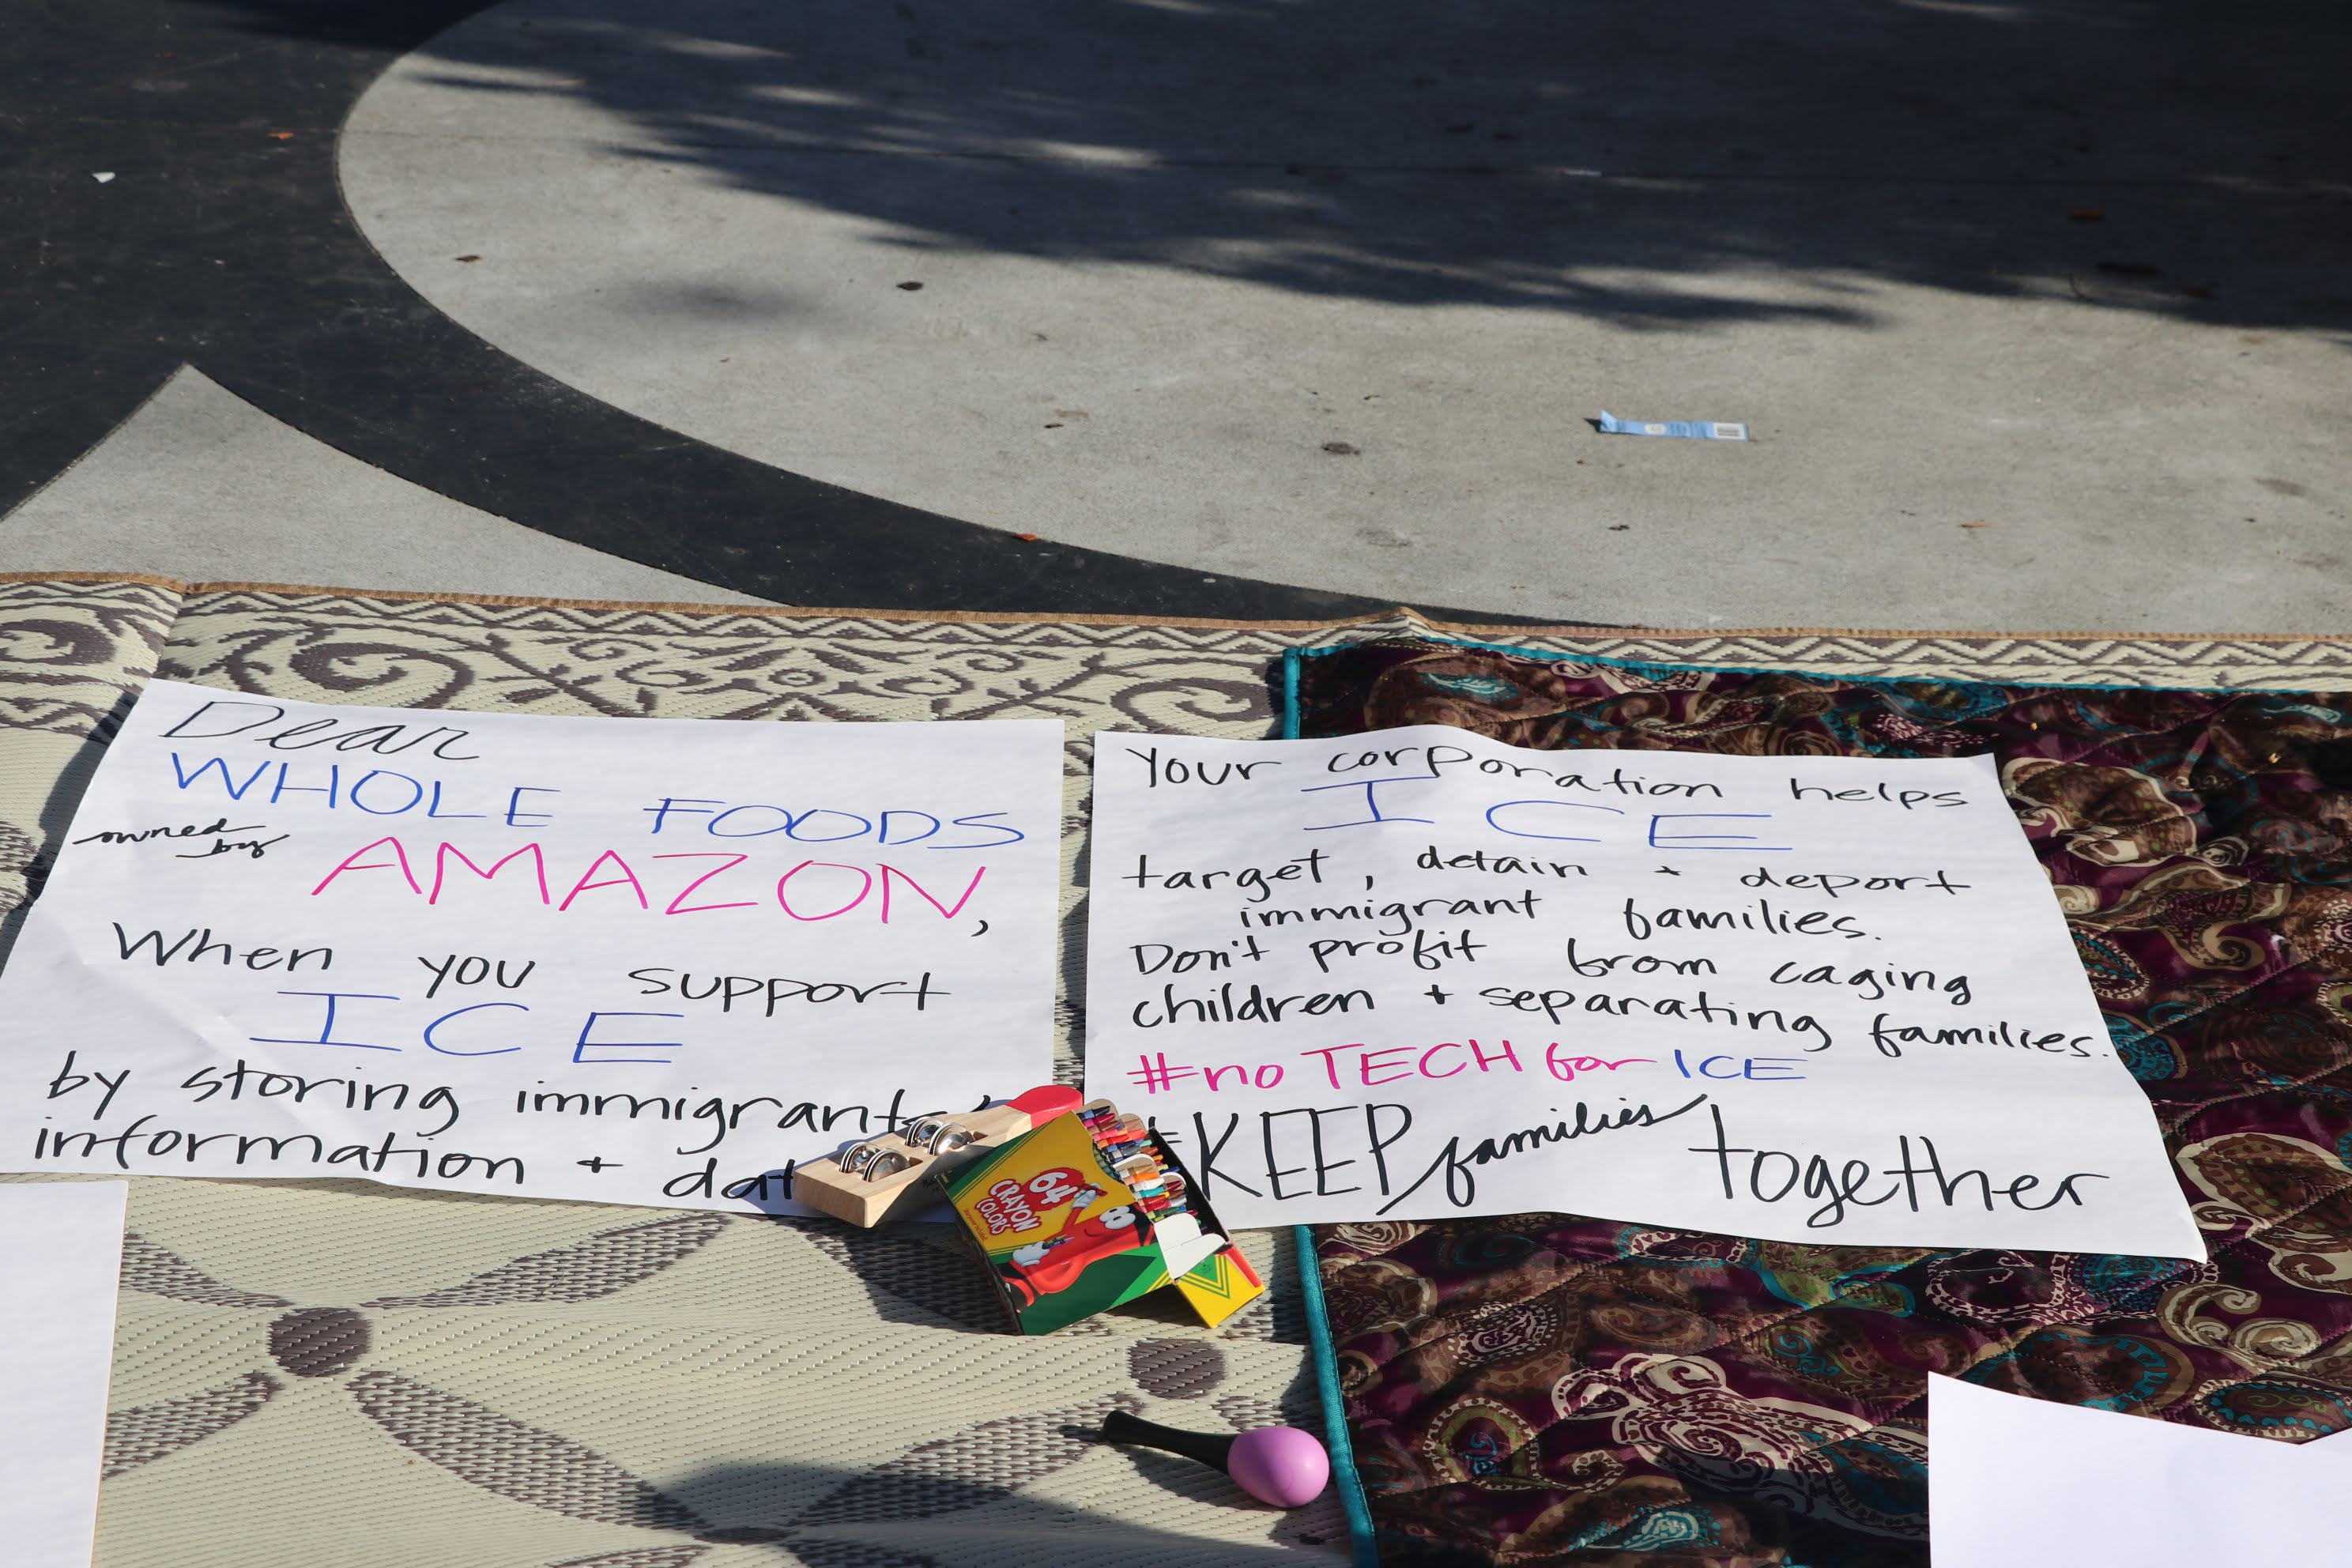 Dear
WHOLE FOODS
owned by
AMAZON,
When you support
ICE
by storing immigrants'
information + dat
Your corporation helps
ICE
target, detain + deport
immigrant families.
Don't profit from caging
children + separating families.
#no TECH for ICE
#KEEP families together
64
CRAYON
COLORS